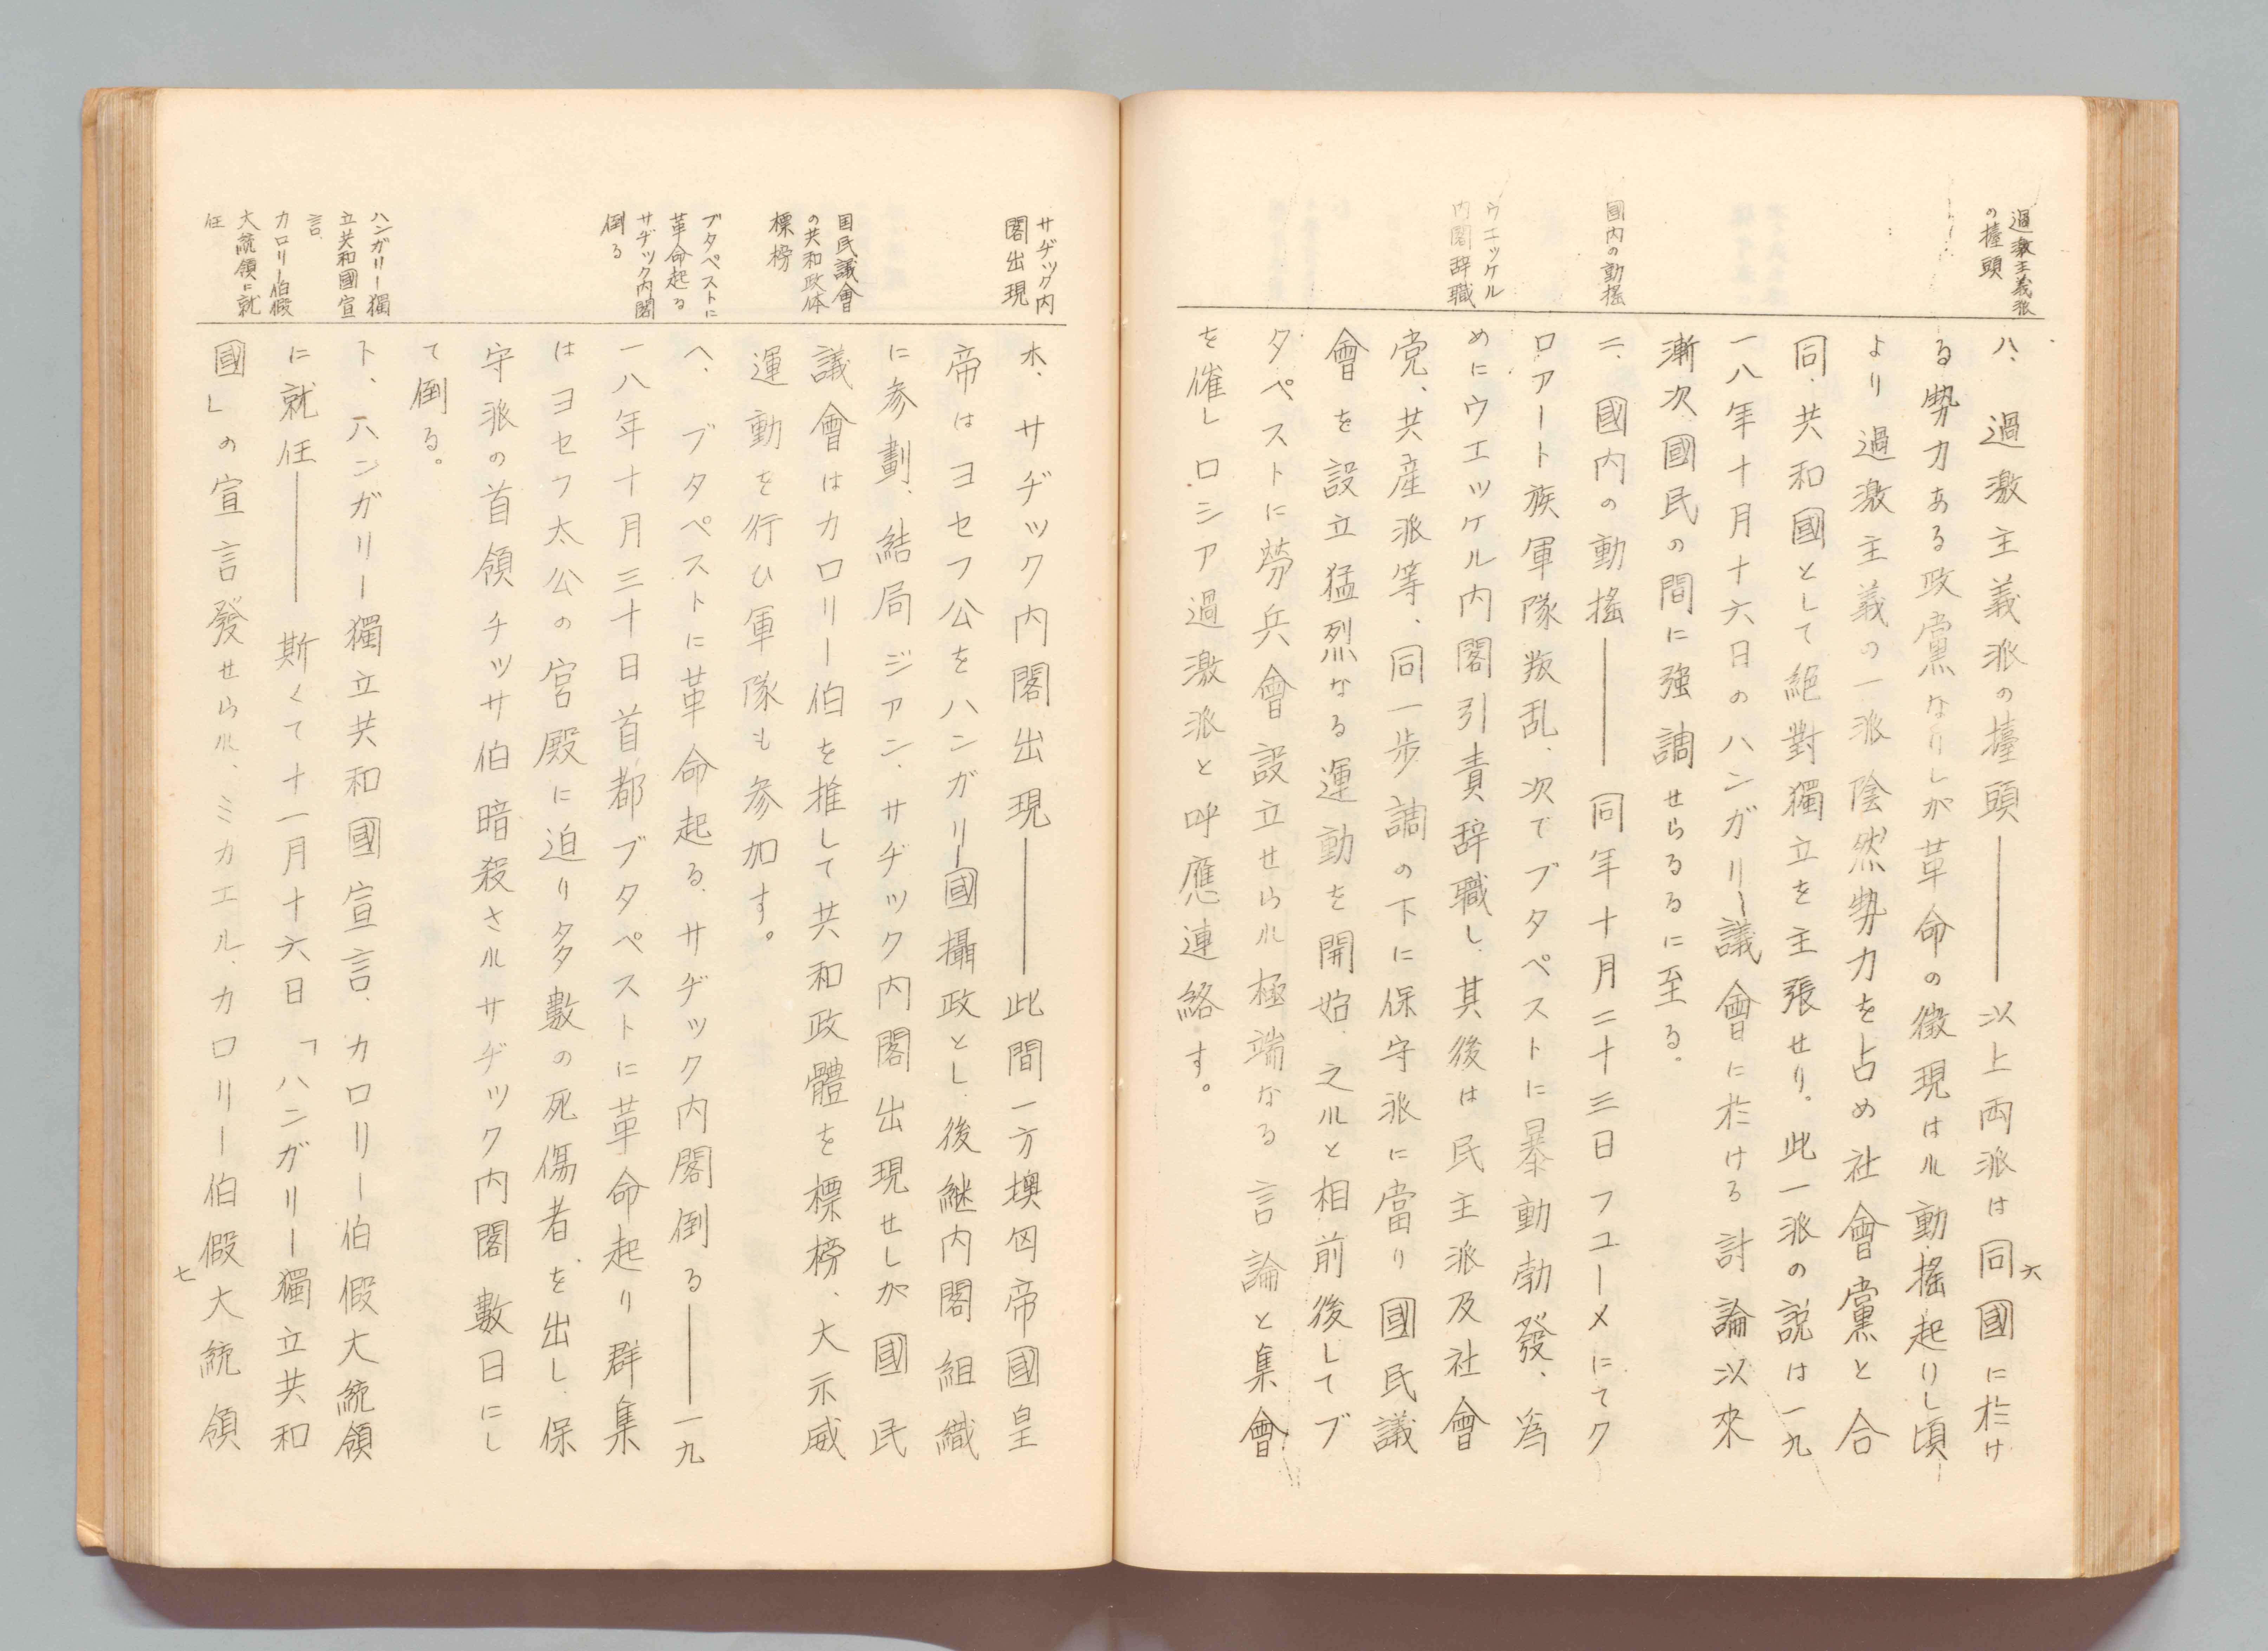 過激主義派
の擡頭
國内の動搖
ウエッケル
内閣辞職
ハ、過激主義派の擡頭――以上両派は同國に於け
る勢力ある政黨なりしが革命の徴現はル動搖起りし頃
より過激主義の一派陰然勢力を占め社會黨と合
同、共和國として絶對獨立を主張せり。此一派の説は一九
一八年十月十六日のハンガリー議會に於ける討論以來
漸次國民の間に強調せらるるに至る。
ニ、國内の動搖――同年十月二十三日フユーメにてク
ロアート族軍隊叛乱、次でブタペストに暴動勃發、為
めにウエッケル内閣引責辞職し、其後は民主派及社會
党、共産派等、同一歩調の下に保守派に當り國民議
會を設立猛烈なる運動を開始、之ルと相前後してブ
タペストに労兵會設立せらル極端なる言論と集會
を催しロシア過激派と呼應連絡す。
六
サヂック内
閣出現
国民議會
の共和政体
標榜
ブタペストに
革命起る
サヂック内閣
倒る
ハンガリー獨
立共和國宣
言
カロリー伯假
大統領に就
任
ホ、サヂック内閣出現――此間一方墺匈帝國皇
帝はヨセフ公をハンガリー國攝政とし、後継内閣組織
に参劃、結局ジアン、サヂック内閣出現せしが國民
議會はカロリー伯を推して共和政體を標榜、大示威
運動を行ひ軍隊も参加す。
ヘ、ブタペストに革命起る、サヂック内閣倒る――一九
一八年十月三十日首都ブタペストに革命起り群集
はヨセフ太公の宮殿に迫り多數の死傷者を出し、保
守派の首領チッサ伯暗殺さルサヂック内閣數日にし
て倒る。
ト、ハンガリー獨立共和國宣言、カロリー伯假大統領
に就任――斯くて十一月十六日「ハンガリー獨立共和
國」の宣言發せらル、ミカエル、カロリー伯假大統領
七